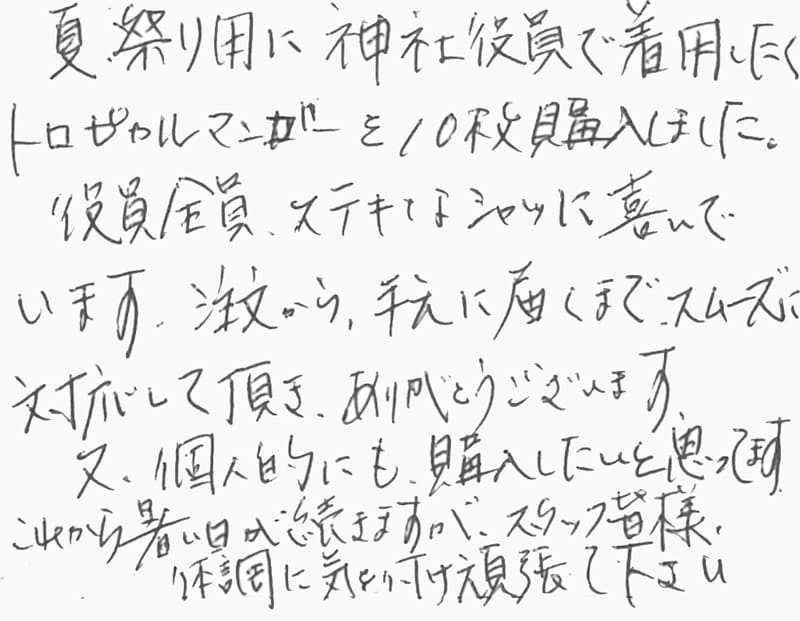 夏祭り用に神社役員で着用したく
トロピカルマンボーを10枚購入しました。
役員全員、ステキなシャツに喜んで
います。注文から、手元に届くまで、スムーズに
対応して頂き、ありがとうございます。
又、個人的にも、購入したいと思ってます
これから暑い日が続きますが、スタッフ皆様、
体調に気を付け頑張て下さい